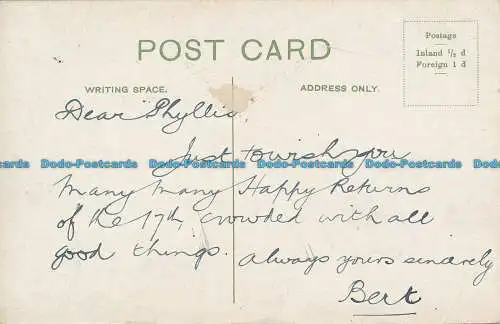 POST CARD
Postage
Inland 1/2 d
Foreign 1 d
WRITING SPACE.
ADDRESS ONLY.
Dear Phyllis,
Just to wish you
Many Many Happy Returns
of the 17th, crowded with all
good things. always yours sincerely
Bert
Dodo-Postcards Dodo-Postcards Dodo-Postcards Dodo-Postcards